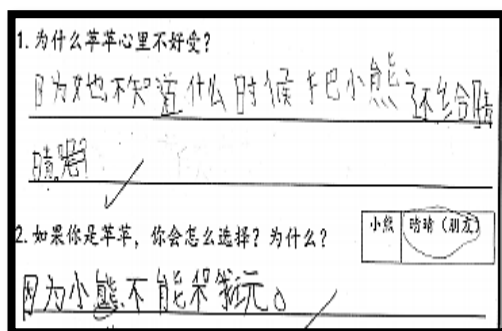 1. 为什么苹苹心里不好受?
因为她不知道什么时候把小熊还给晴
晴。
2. 如果你是苹苹,你会怎么选择?为什么?
小熊 晴晴(朋友)
因为小熊不能和我玩。